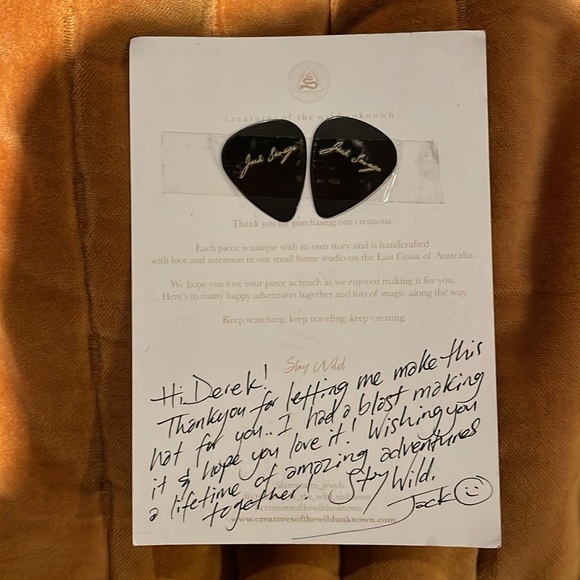 creatures of the wild unknown
Jack Savage Jack Savage
Thank you for purchasing our creations.
Each piece is unique with its own story and is handcrafted
with love and intention in our small home studio on the East Coast of Australia.
We hope you love your piece as much as we enjoyed making it for you.
Here's to many happy adventures together and lots of magic along the way.
Keep searching, keep traveling, keep creating.
Stay Wild
Hi Derek!
Thankyou for letting me make this
hat for you.. I had a blast making
it & hope you love it! Wishing you
a lifetime of amazing adventures
together. Stay Wild.
Jack
creaturesofthewildunknown
www.creaturesofthewildunknown.com